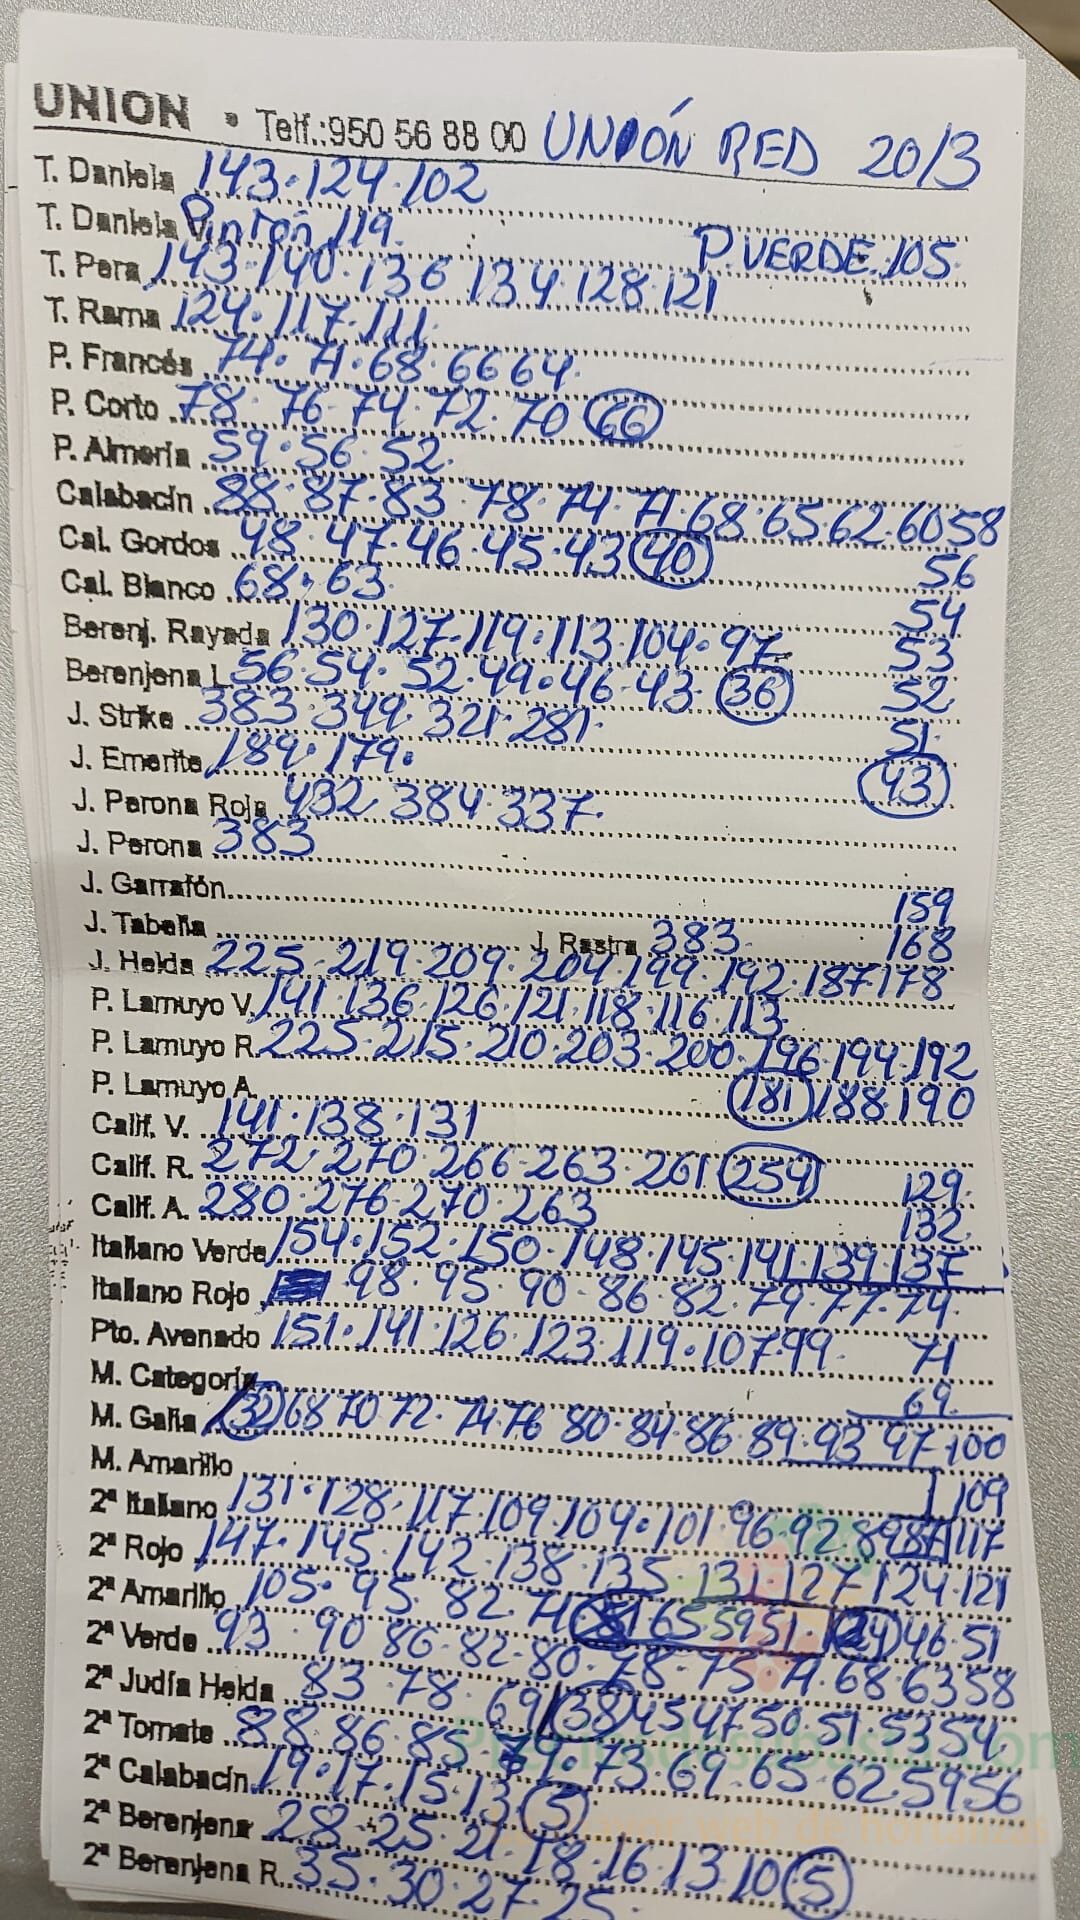 UNION • Telf.:950 56 88 00 UNIÓN RED 20/3
T. Daniela 143·124·102
T. Daniela V. Pintón 119. P. VERDE 105.
T. Pera 143·140·136 134·128·121
T. Rama 124·117·111.
P. Francés 74·71·68·66 64.
P. Corto 78·76·74·72·70 66
P. Almería 59·56·52.
Calabacín 88·87·83·78·74·71·68·65·62·60 58
Cal. Gordos 48·47·46·45·43 40 56
Cal. Blanco 68·63. 54
Berenj. Rayada 130·127·119·113·104·97 53
Berenjena L. 56·54·52·49·46·43·36 52
J. Strike 383·349·321·281. 51.
J. Emerite 189·179. 43
J. Perona Roja 432 384·337.
J. Perona 383
J. Garrafón 159
J. Tabella J. Rastra 383. 168
J. Helda 225·219·209·204·199·192·187·178
P. Lamuyo V. 141·136·126·121·118·116·113.
P. Lamuyo R. 225·215·210·203·200·196·194·192
P. Lamuyo A. 181 188·190
Calif. V. 141·138·131
Calif. R. 272·270·266·263·261 254 129.
Calif. A. 280·276·270·263 132
Italiano Verde 154·152·150·148·145·141·139·137
Italiano Rojo 98·95·90·86·82·79·77·74.
Pto. Avenado 151·141·126·123·119·107·99. 71
M. Categoría 69.
M. Galia 32 68 70 72·74 76 80·84·86·89·93 97·100
M. Amarillo 109
2ª Italiano 131·128·117·109·104·101·96·92 89 87 117
2ª Rojo 147·145·142·138·135·131·127 124·121
2ª Amarillo 105·95·82·71 65 59 51· 46·51
2ª Verde 93·90 86·82·80·78·75·71·68·63 58
2ª Judía Helda 83·78·69 38 45 47 50·51·53 54
2ª Tomate 88 86·85·79·73·69·65·62 59 56
2ª Calabacín 19·17·15·13 5
2ª Berenjena 28·25·21·18·16·13 10 5
2ª Berenjena R. 35·30·27·25